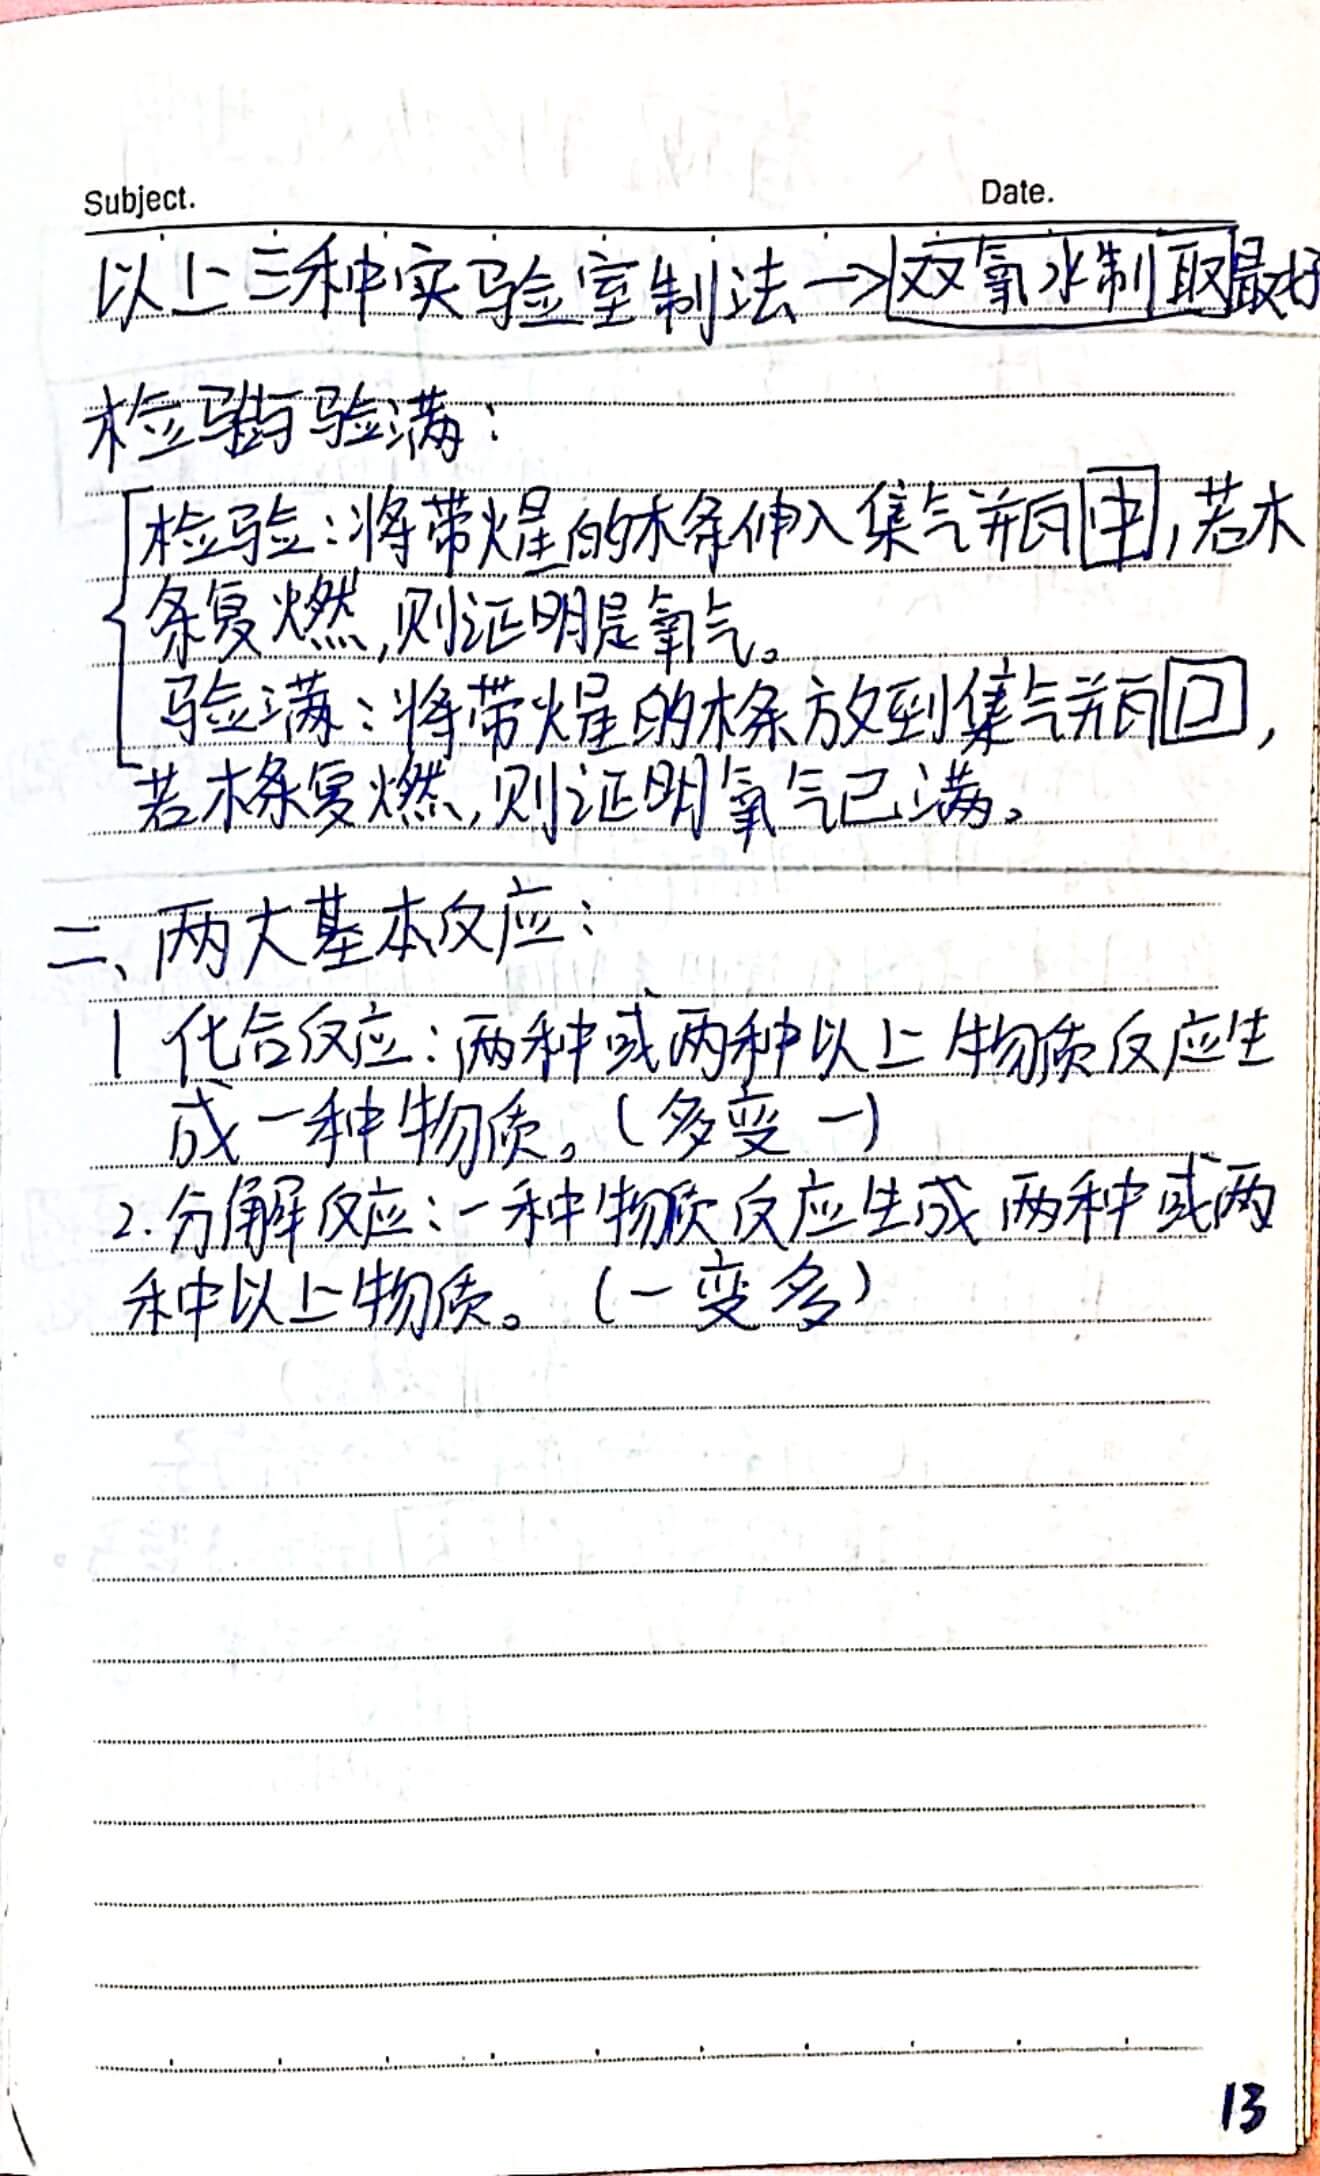 Subject. Date.
以上三种实验室制法→双氧水制取最好
检验与验满：
检验：将带火星的木条伸入集气瓶中，若木
条复燃，则证明是氧气。
验满：将带火星的木条放到集气瓶口，
若木条复燃，则证明氧气已满。
二、两大基本反应：
1 化合反应：两种或两种以上物质反应生
成一种物质。（多变一）
2.分解反应：一种物质反应生成两种或两
种以上物质。（一变多）
13